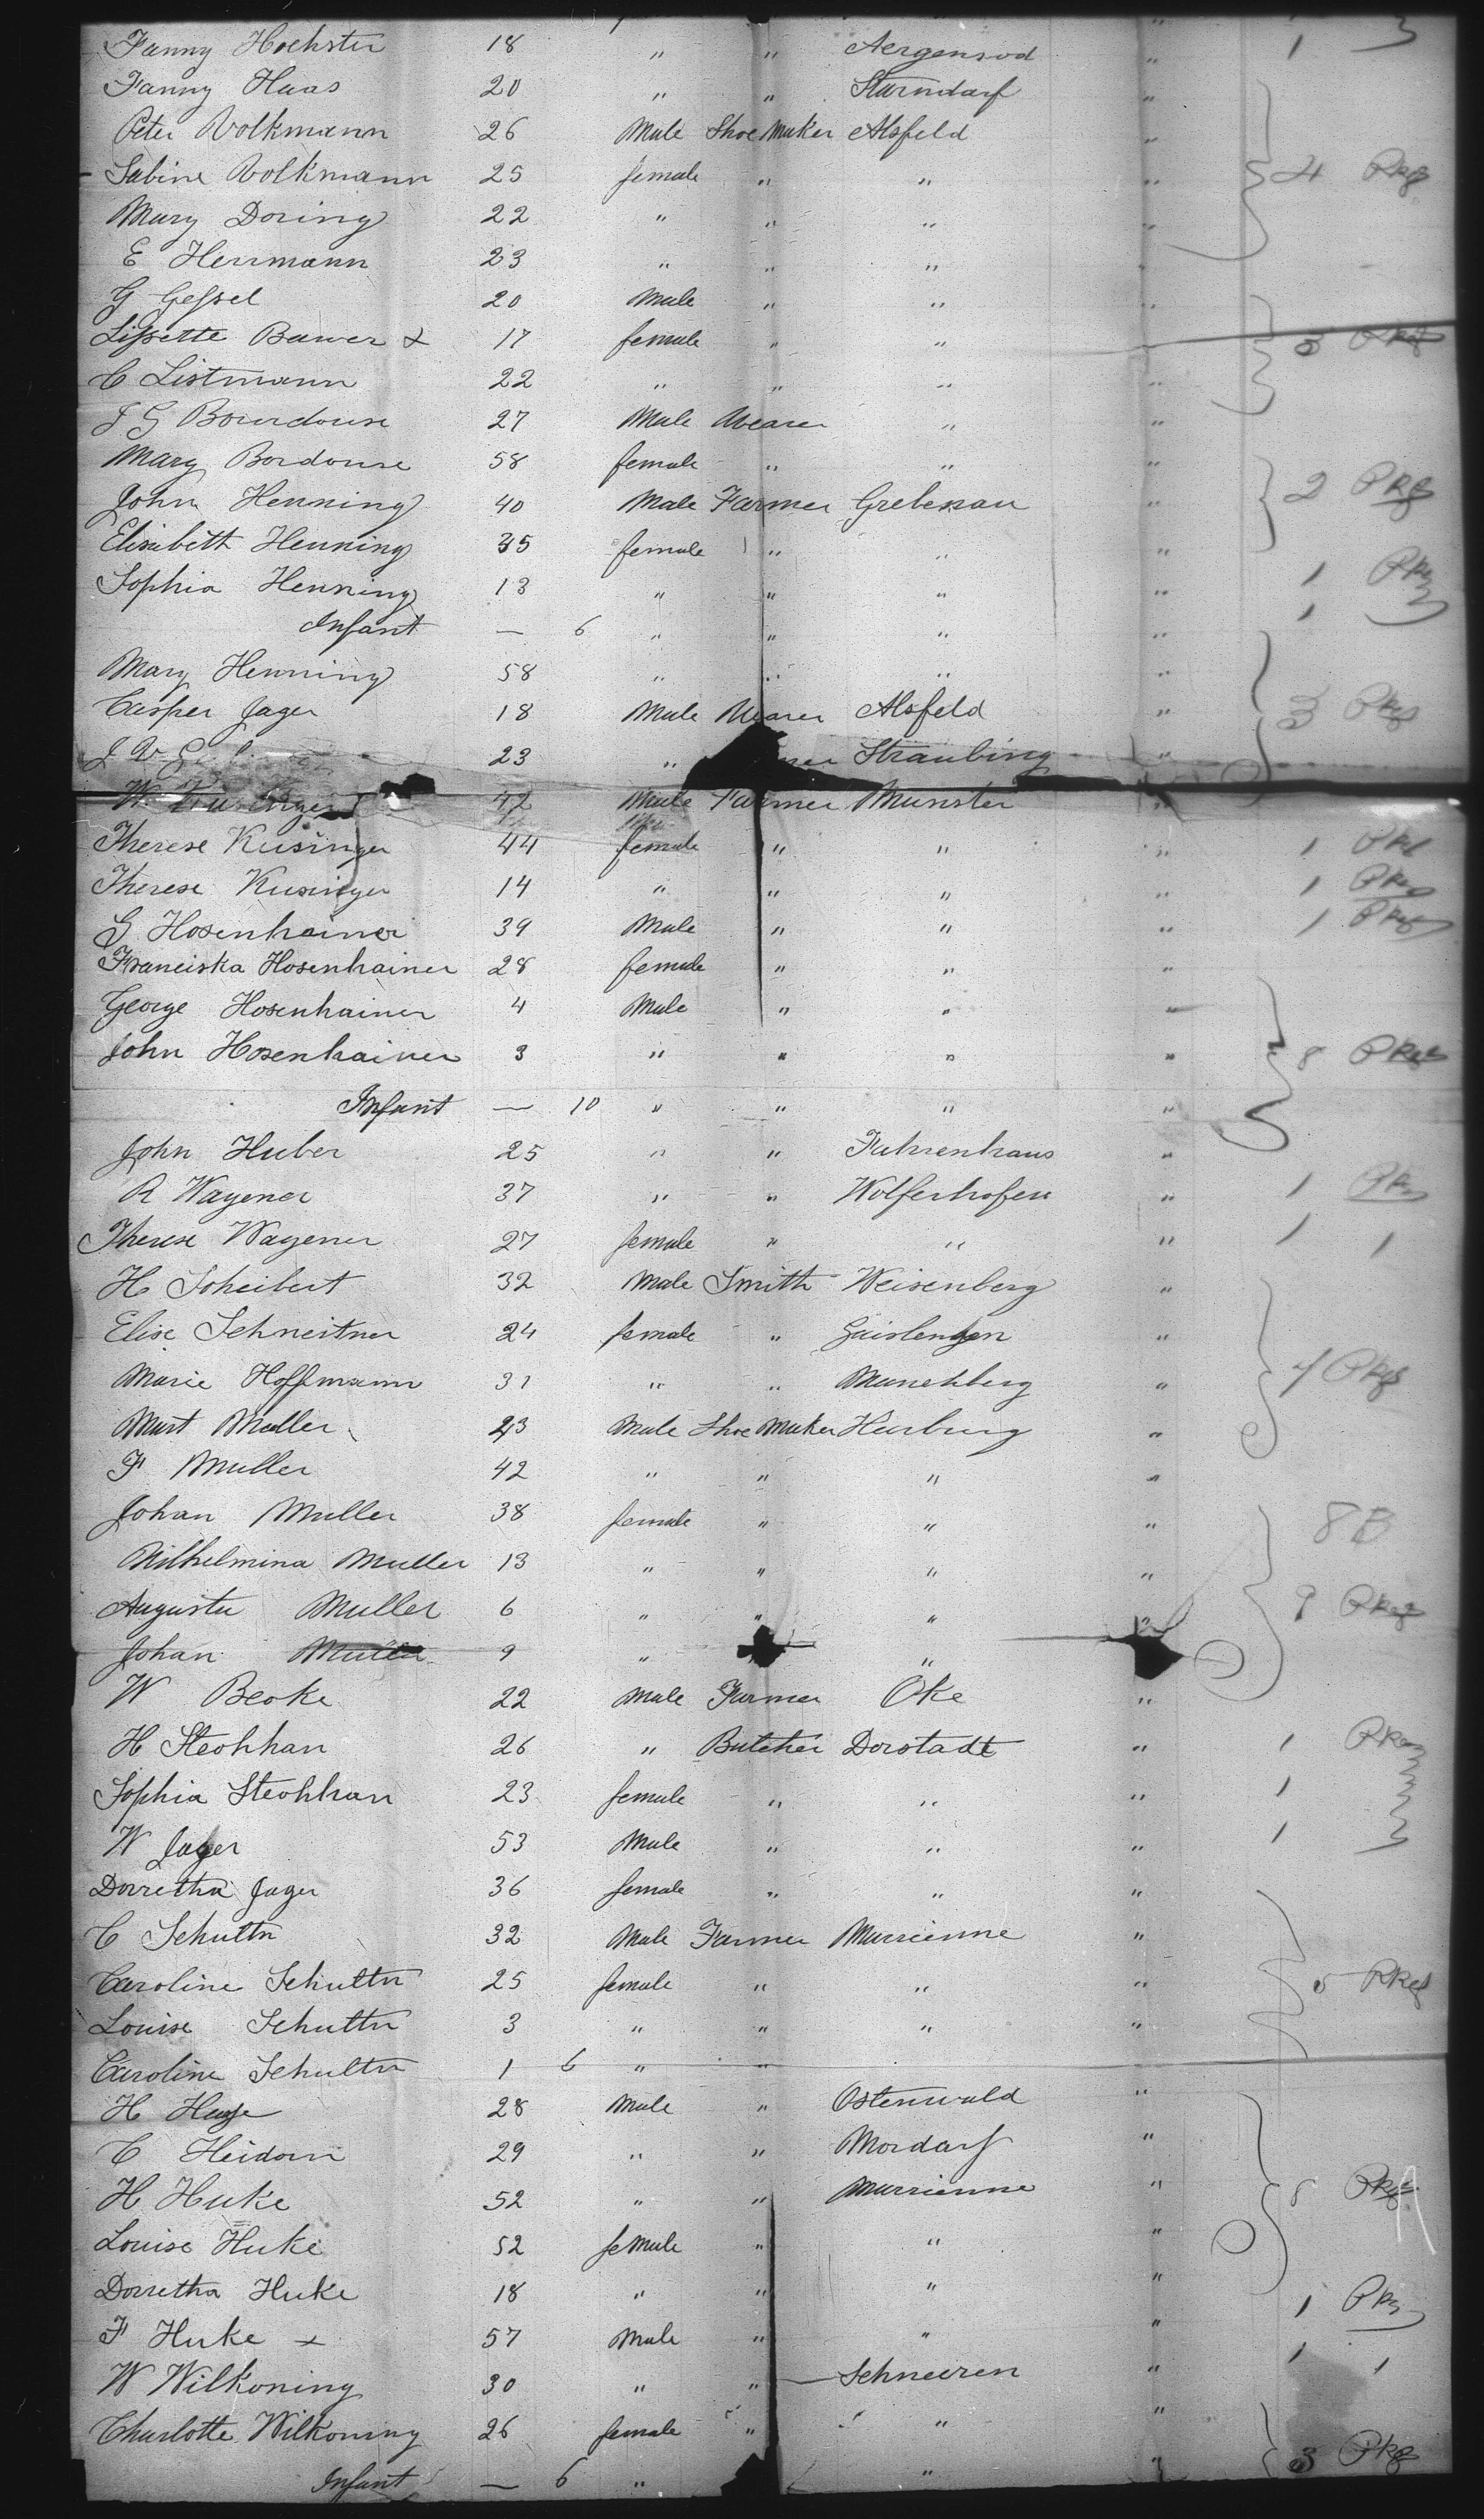 Fanny Hochster 18 " " Aergensod " 1
Fanny Haas 20 " " Starndarf "
Peter Volkmann 26 Male Shoe Maker Alsfeld "
Sabine Volkmann 25 female " " " 4 Pkgs
Mary Doring 22 " " " "
E Herrmann 23 " " " "
G Gessel 20 Male " " "
Lissette Bauer x 17 female " " 3 Pkgs
C Listmann 22 " " " "
J G Bourdouse 27 Male Wearer " "
Mary Bordouse 58 female " " "
John Henning 40 Male Farmer Grebenau 2 Pkgs
Elisabeth Henning 35 female " " "
Sophia Henning 13 " " " " 1 Pkg
Infant — 6 " " " " 1
Mary Henning 58 " " " "
Casper Jager 18 Male Wearer Alsfeld " 3 Pkgs
J 23 " Straubing "
W. Kusinger 42 Male Farmer Munster "
Therese Kusinger 44 female " " " 1 Pkg
Therese Kusinger 14 " " " " 1 Pkg
G Hosenhainer 39 Male " " " 1 Pkg
Franciska Hosenhainer 28 female " " "
George Hosenhainer 4 Male " " "
John Hosenhainer 3 " " " " 8 Pkgs
Infant — 10 " " " "
John Huber 25 " " Fuhrenhaus "
R Wagener 37 " " Wolferhofen " 1 Pkg
Therese Wagener 27 female " " " 1 1
H Scheibert 32 Male Smith Weisenberg "
Elise Schneitner 24 female " Gaislengen "
Marie Hoffmann 31 " " Munchberg " 4 Pkgs
Mart Muller 23 Male Shoe Maker Harburg "
F Muller 42 " " " "
Johan Muller 38 female " " " 8 B
Wilhelmina Muller 13 " " " "
Augusta Muller 6 " " " " 9 Pkgs
Johan Muller 9 " "
W Beoke 22 Male Farmer Oke "
H Steohhan 26 " Butcher Dorstadt " 1 Pkg
Sophia Steohhan 23 female " " " 1
W Jager 53 Male " " " 1
Dorretha Jager 36 female " " "
C Schultn 32 Male Farmer Murrienne "
Caroline Schultn 25 female " " " 5 Pkgs
Louise Schultn 3 " " " "
Caroline Schultn 1 6 " "
H Hage 28 Male " Ostenwald "
C Heidorn 29 " " Mordarf "
H Huke 52 " " Murrienne " 8 Pkgs
Louise Huke 52 female " " "
Dorretha Huke 18 " " " " 1 Pkg
F Huke x 57 Male " " " 1 1
W Wilkoning 30 " " Schneeren "
Charlotte Wilkoning 26 female " " "
Infant — 6 " " " 3 Pkgs